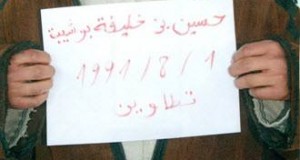 حسين بن خليفة بوشيبة
1991/8/1
تطاوين